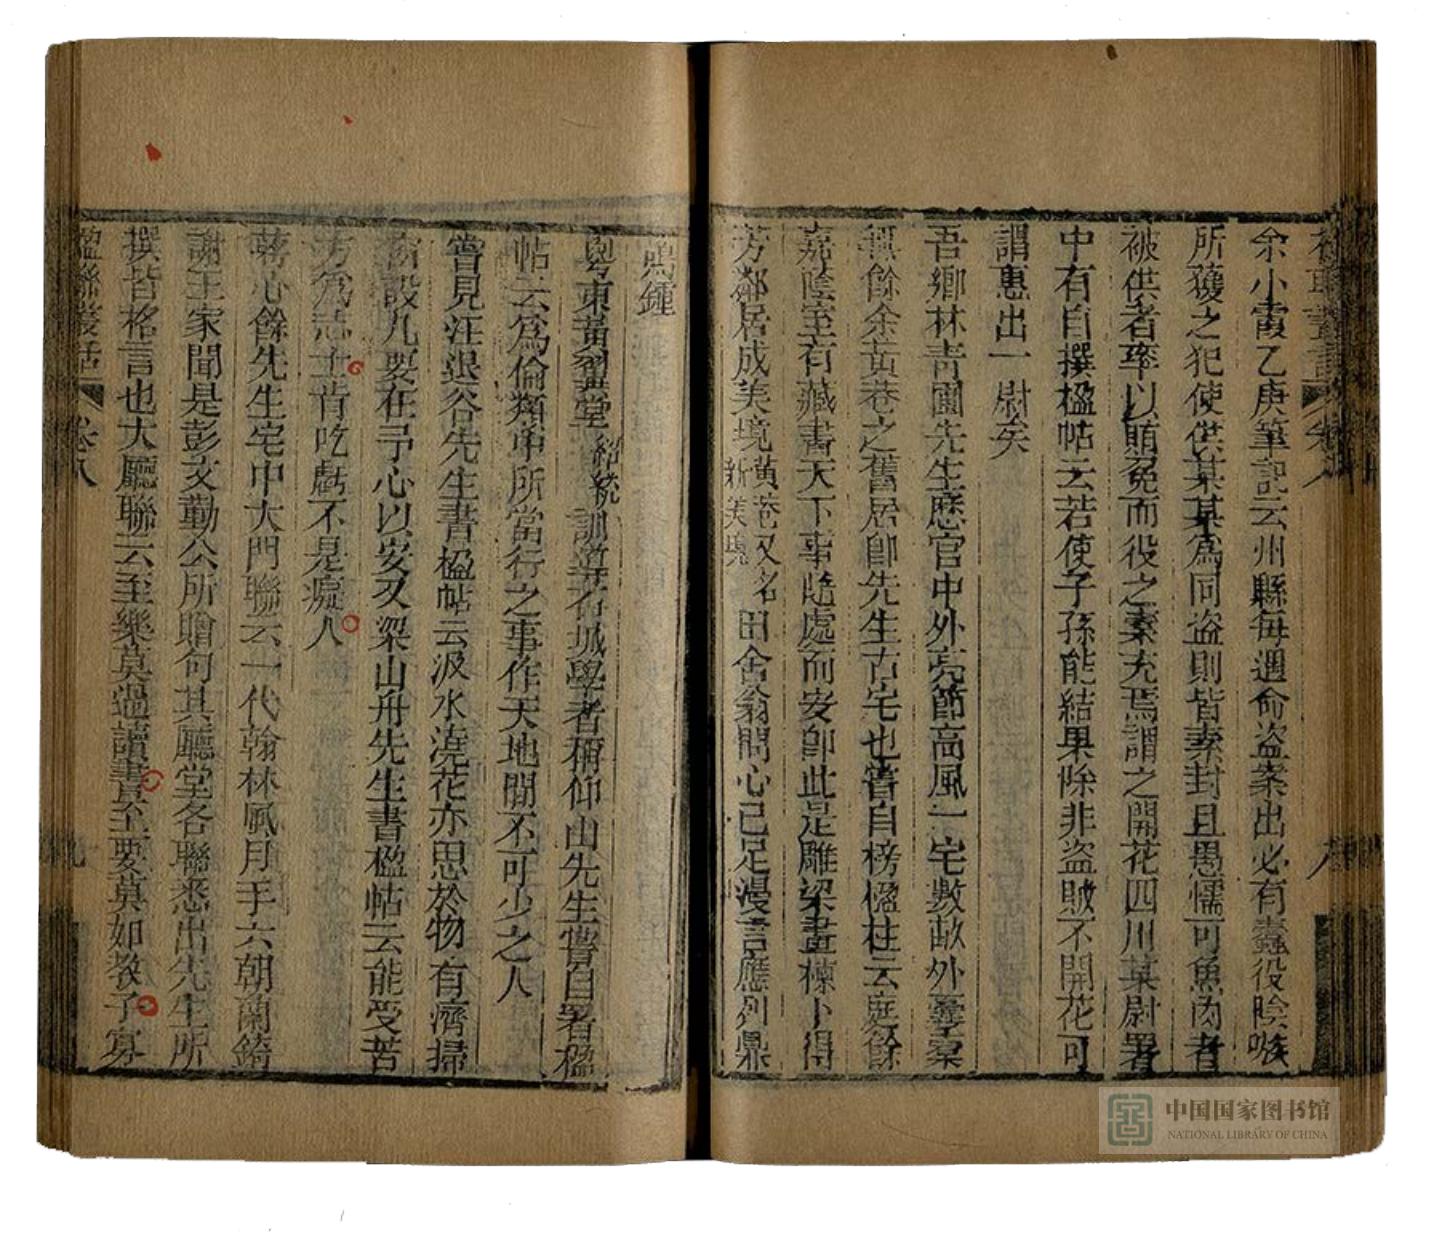 余小霞乙庚筆記云州縣每遇命盜案出必有蠹役陰嗾
所獲之犯使供某某為同盜則皆素封且愚懦可魚肉者
被供者率以賄免而役之橐充焉謂之開花四川某尉署
中有自撰楹帖云若使子孫能結果除非盜賊不開花可
謂惠出一尉矣
吾鄉林青圃先生歷官中外亮節高風一宅數畝外羣稾
無餘余黃巷之舊居卽先生古宅也嘗自榜楹柱云庭餘
嘉蔭室有藏書天下事隨處而安卽此是雕梁畫棟卜得
芳鄰居成美境黃巷又名
新美境田舍翁問心已足漫言應列鼎
鳴鍾
粵東黃翠堂紹統訓導石城學者稱仰山先生嘗自署楹
帖云為倫類中所當行之事作天地間不可少之人
嘗見汪退谷先生書楹帖云汲水澆花亦思於物有濟掃
窗設几要在予心以安又梁山舟先生書楹帖云能受苦
方為志士肯吃虧不是癡人
蔣心餘先生宅中大門聯云一代翰林風月手六朝蘭錡
謝王家聞是彭文勤公所贈句其廳堂各聯悉出先生所
撰皆格言也大廳聯云至樂莫過讀書至要莫如教子寡
楹聯叢話 卷八
九
中国国家图书馆
NATIONAL LIBRARY OF CHINA